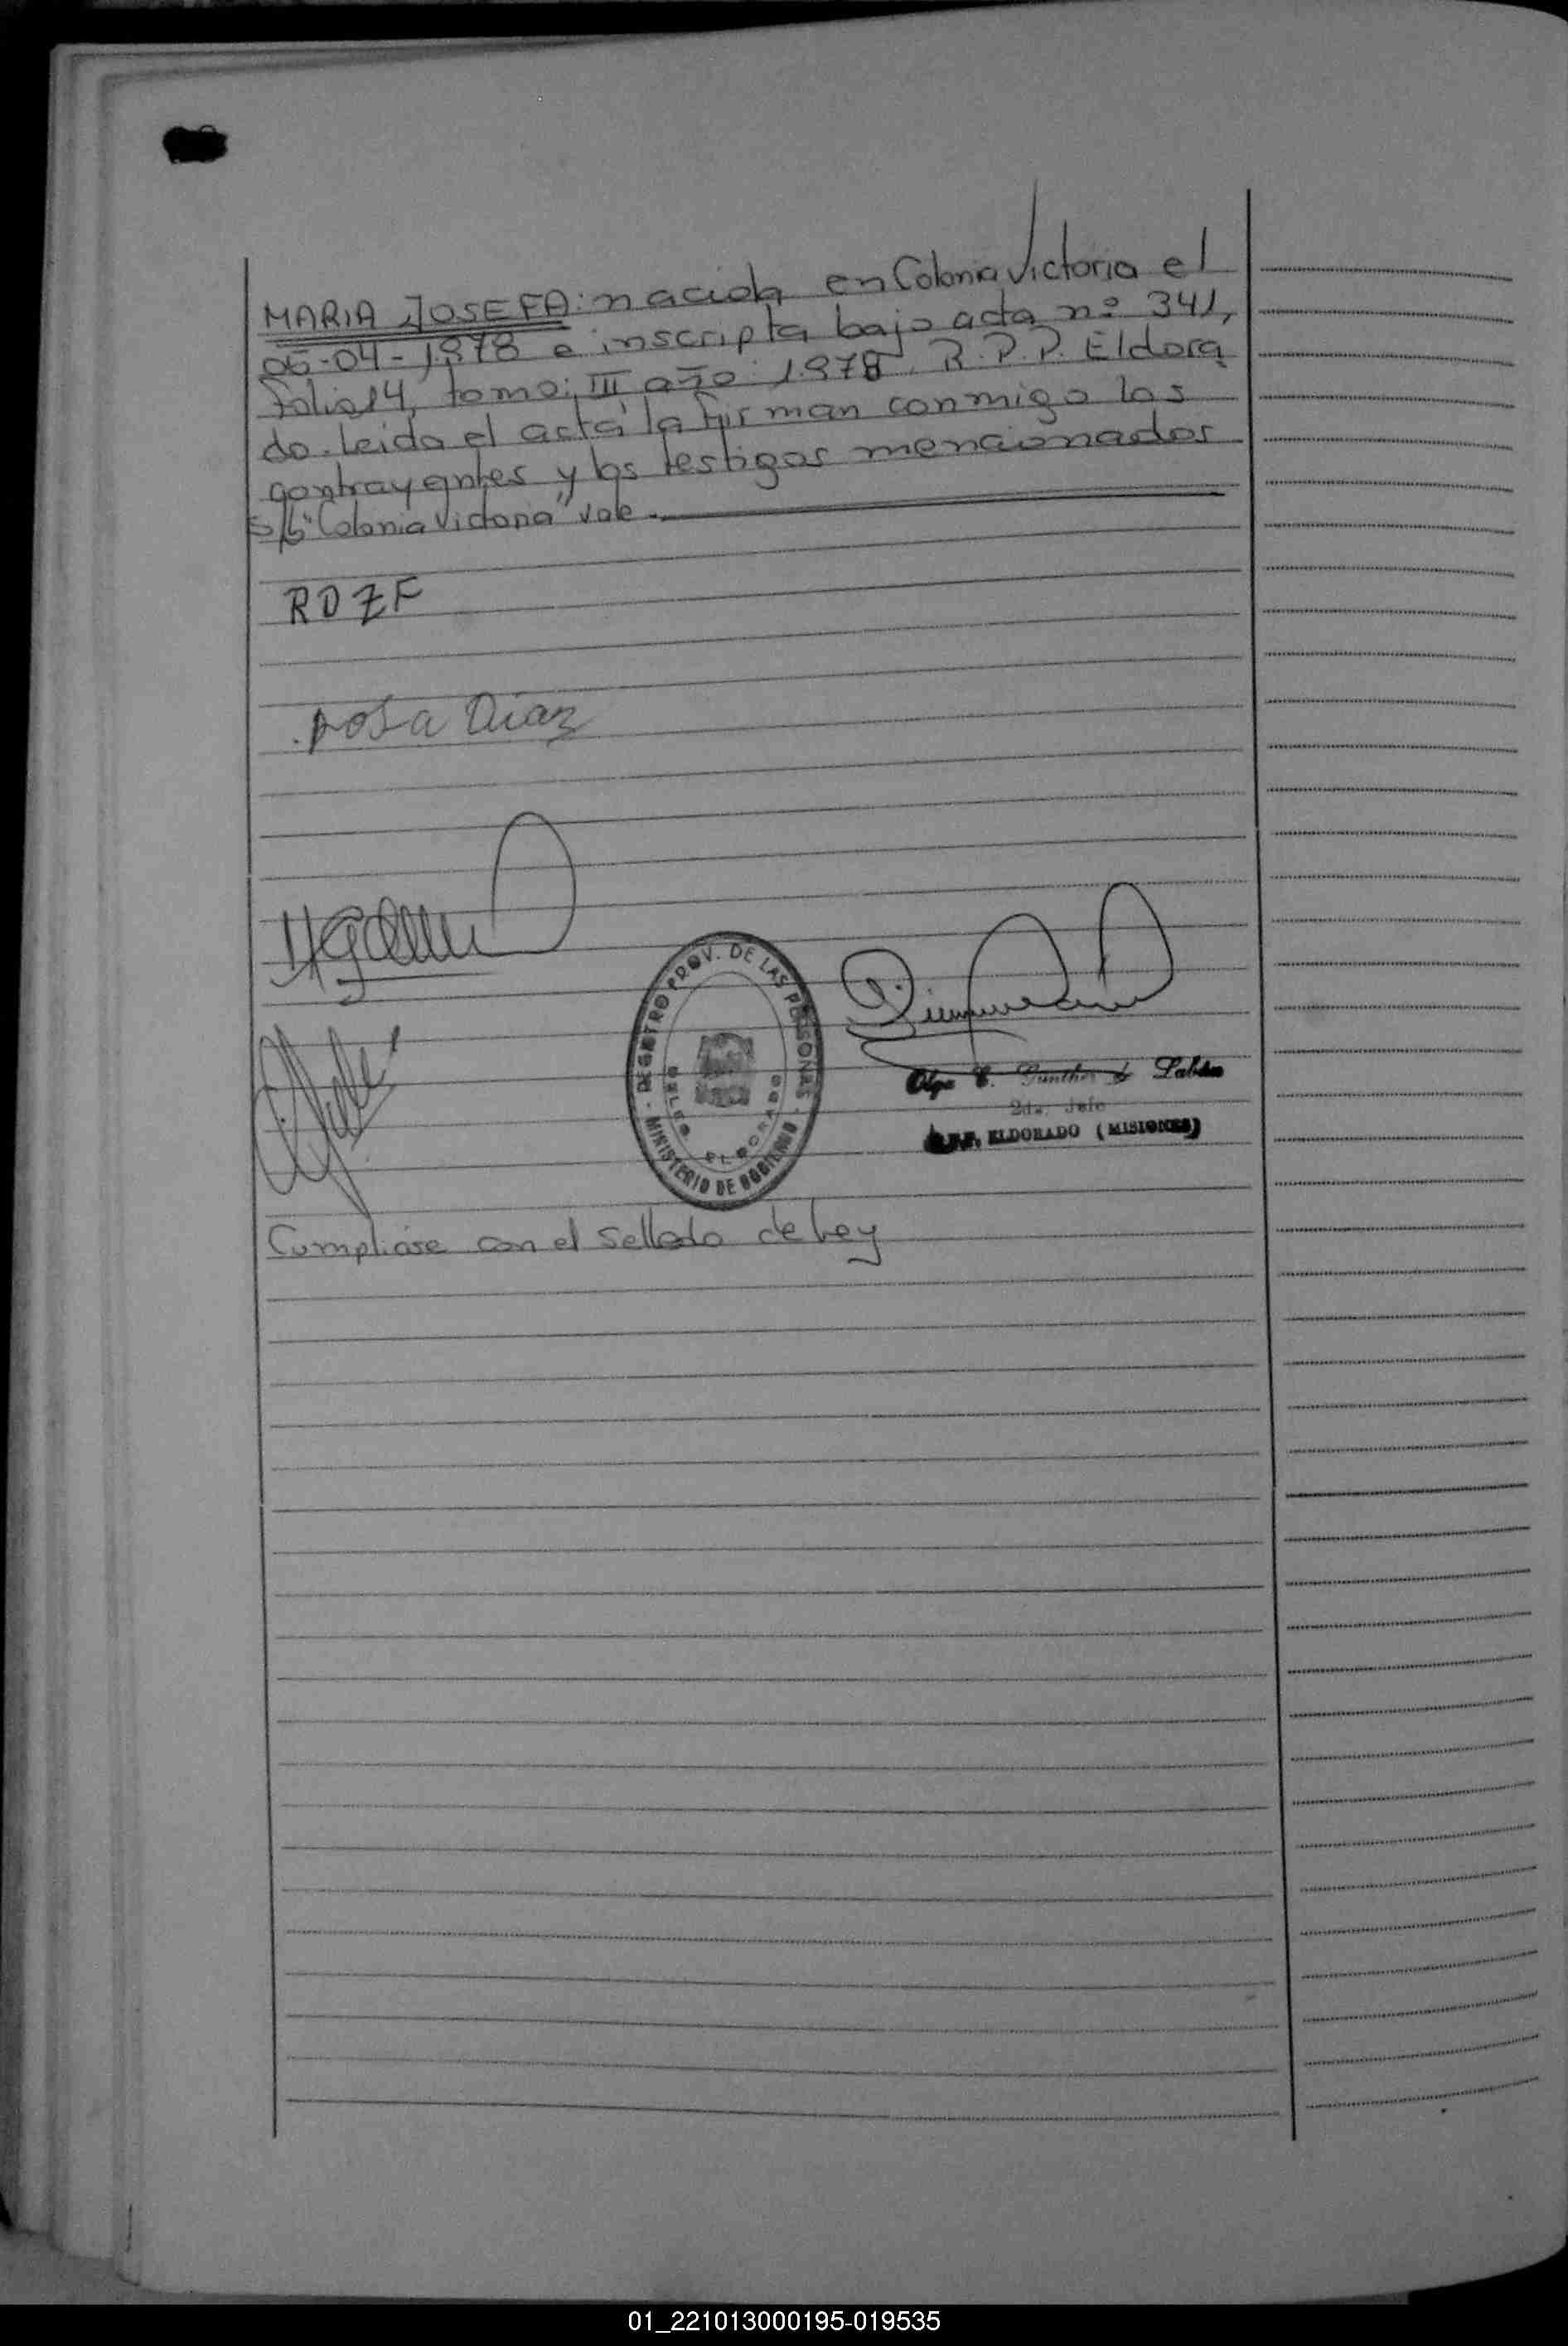 MARIA JOSEFA: nacida en Colonia Victoria el
06-04-1.978 e inscripta bajo acta nº 341,
folio 14, tomo: III año 1.978. R.P.P. Eldora
do. Leida el acta la firman conmigo los
contrayentes y los testigos mencionados
S/b "Colonia Victoria" vale.
RDZF
rosa Diaz
REGISTRO PROV. DE LAS PERSONAS
MINISTERIO DE GOBIERNO
ELDORADO
Olga C. Gunther de Labán
2da. Jefe
ELDORADO (MISIONES)
Cumpliase con el sellado de Ley
01_221013000195-019535